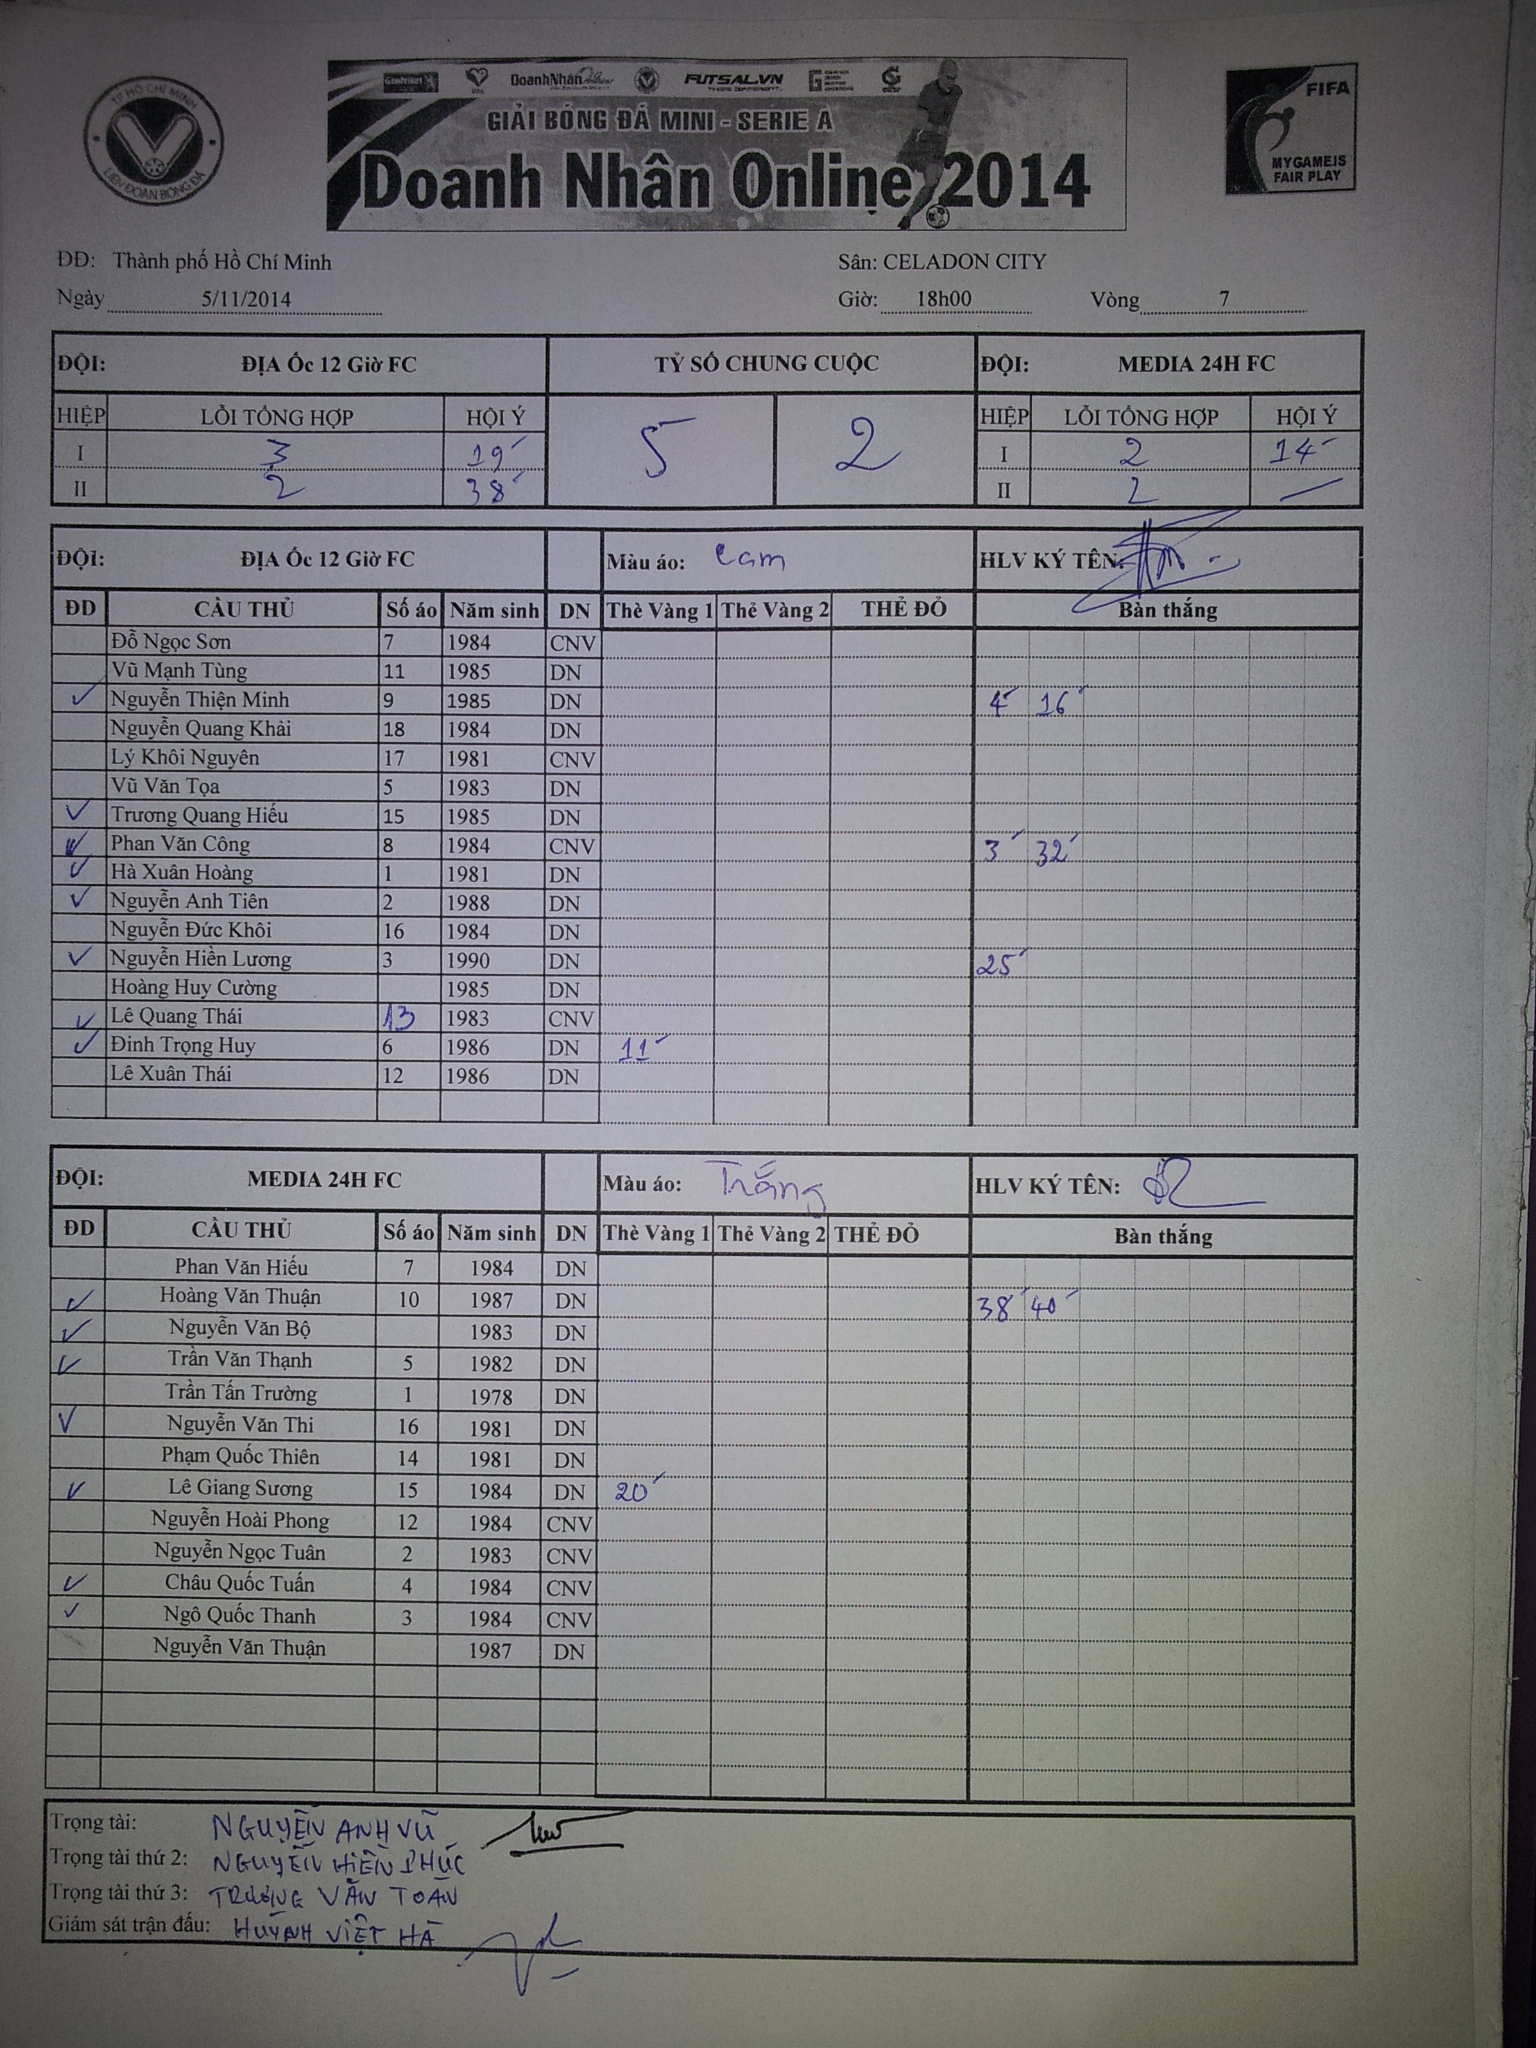 TP HỒ CHÍ MINH
LIÊN ĐOÀN BÓNG ĐÁ
DoanhNhân FUTSAL.VN
GIẢI BÓNG ĐÁ MINI - SERIE A
Doanh Nhân Online 2014
FIFA
MY GAME IS
FAIR PLAY
ĐĐ: Thành phố Hồ Chí Minh Sân: CELADON CITY
Ngày 5/11/2014 Giờ: 18h00 Vòng 7
ĐỘI: ĐỊA Ốc 12 Giờ FC TỶ SỐ CHUNG CUỘC ĐỘI: MEDIA 24H FC
HIỆP LỖI TỔNG HỢP HỘI Ý 5 2 HIỆP LỖI TỔNG HỢP HỘI Ý
I 3 19' I 2 14'
II 2 38' II 2 —
ĐỘI: ĐỊA Ốc 12 Giờ FC Màu áo: Cam HLV KÝ TÊN:
ĐD CẦU THỦ Số áo Năm sinh DN Thẻ Vàng 1 Thẻ Vàng 2 THẺ ĐỎ Bàn thắng
Đỗ Ngọc Sơn 7 1984 CNV
Vũ Mạnh Tùng 11 1985 DN
✓ Nguyễn Thiện Minh 9 1985 DN 4' 16'
Nguyễn Quang Khải 18 1984 DN
Lý Khôi Nguyên 17 1981 CNV
Vũ Văn Tọa 5 1983 DN
✓ Trương Quang Hiếu 15 1985 DN
✓ Phan Văn Công 8 1984 CNV 3' 32'
✓ Hà Xuân Hoàng 1 1981 DN
✓ Nguyễn Anh Tiên 2 1988 DN
Nguyễn Đức Khôi 16 1984 DN
✓ Nguyễn Hiền Lương 3 1990 DN 25'
Hoàng Huy Cường 1985 DN
✓ Lê Quang Thái 13 1983 CNV
✓ Đinh Trọng Huy 6 1986 DN 11'
Lê Xuân Thái 12 1986 DN
ĐỘI: MEDIA 24H FC Màu áo: Trắng HLV KÝ TÊN:
ĐD CẦU THỦ Số áo Năm sinh DN Thẻ Vàng 1 Thẻ Vàng 2 THẺ ĐỎ Bàn thắng
Phan Văn Hiếu 7 1984 DN
✓ Hoàng Văn Thuận 10 1987 DN 38' 40'
✓ Nguyễn Văn Bộ 1983 DN
✓ Trần Văn Thạnh 5 1982 DN
Trần Tấn Trường 1 1978 DN
✓ Nguyễn Văn Thi 16 1981 DN
Phạm Quốc Thiên 14 1981 DN
✓ Lê Giang Sương 15 1984 DN 20'
Nguyễn Hoài Phong 12 1984 CNV
Nguyễn Ngọc Tuân 2 1983 CNV
✓ Châu Quốc Tuấn 4 1984 CNV
✓ Ngô Quốc Thanh 3 1984 CNV
Nguyễn Văn Thuận 1987 DN
Trọng tài: NGUYỄN ANH VŨ
Trọng tài thứ 2: NGUYỄN HIỀN PHÚC
Trọng tài thứ 3: TRƯƠNG VĂN TOÀN
Giám sát trận đấu: HUỲNH VIỆT HÀ